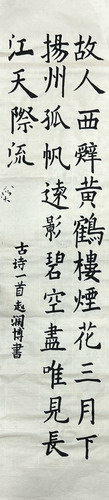 故人西辭黃鶴樓煙花三月下
揚州孤帆遠影碧空盡唯見長
江天際流
古诗一首赵润博書